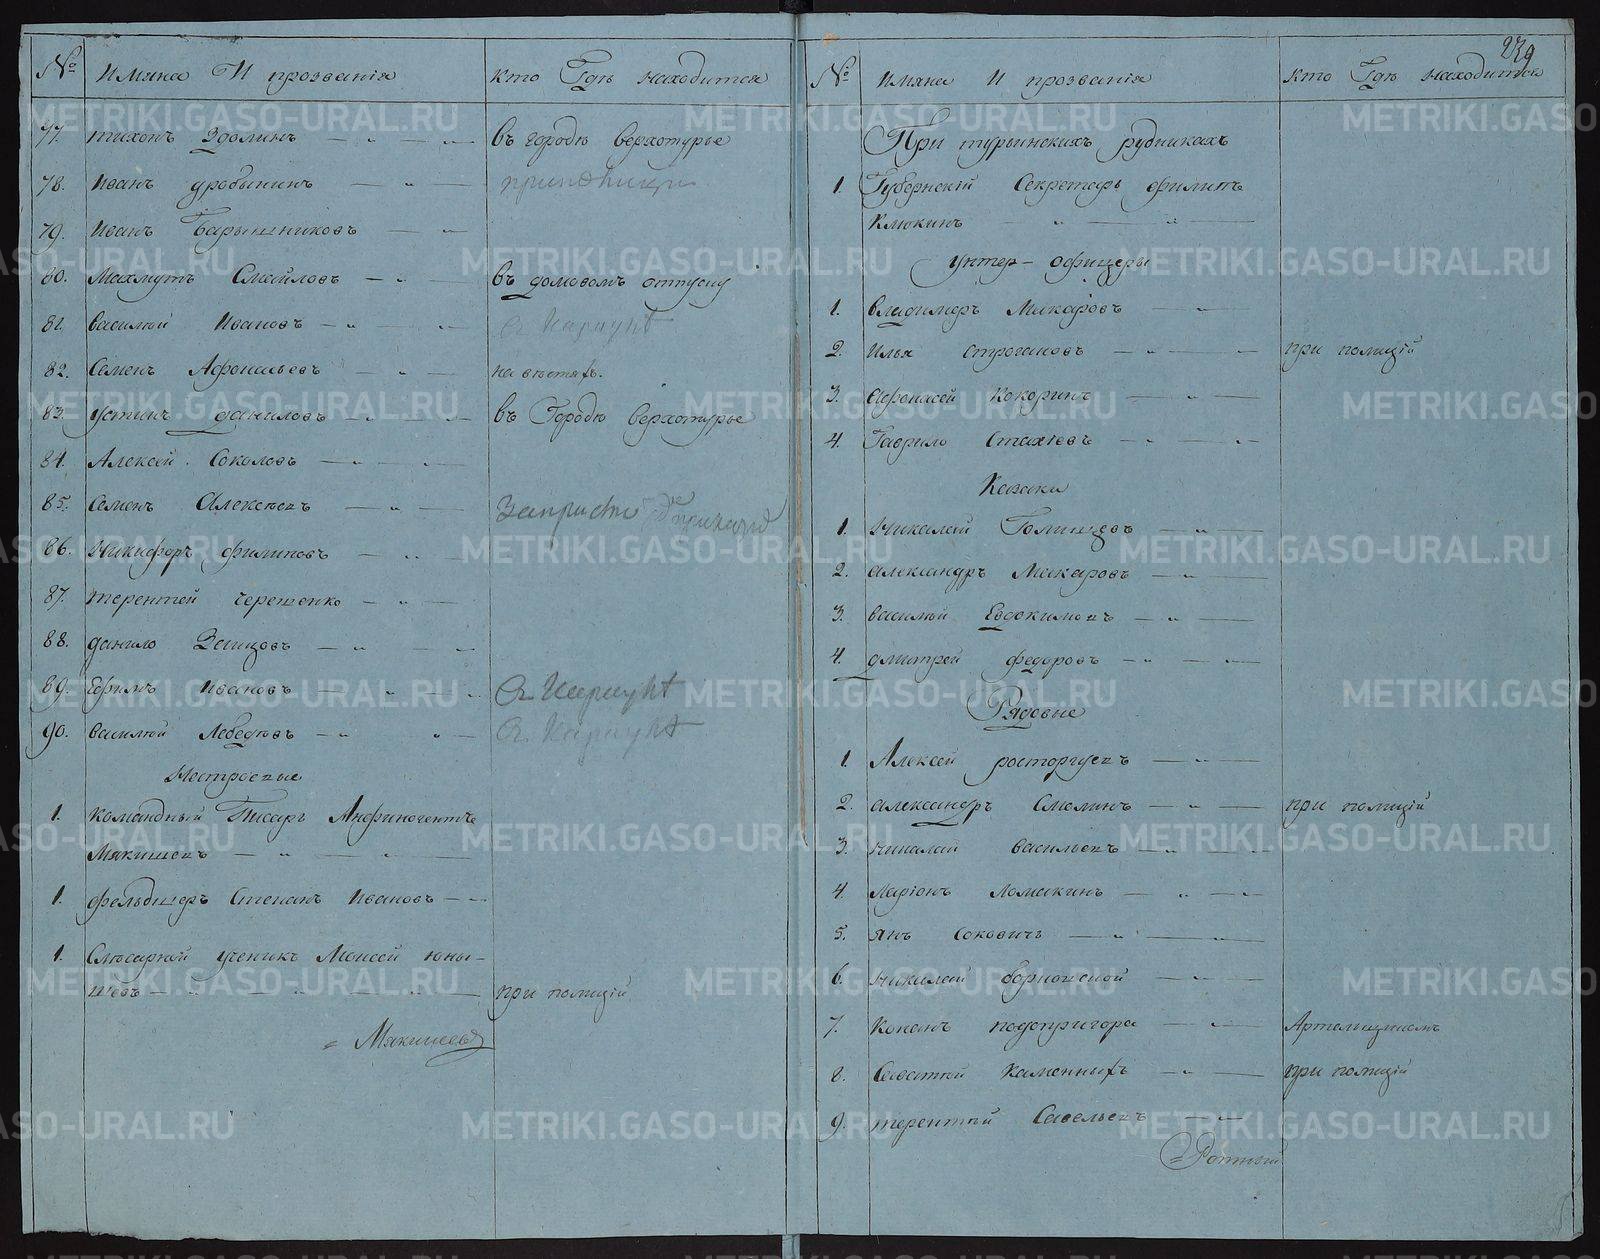 № Имяна И прозванія кто Гдѣ находится
77. тихонъ Здолинъ въ городѣ верхотурье
78. Иванъ дробынинъ
79. Иванъ Барышниковъ
80. Махмутъ Смайловъ въ домовомъ отпуску
81. василей Ивановъ
82. Семенъ Афонасьевъ
83. устинъ даниловъ въ Городѣ верхотурье
84. Алексей Соколовъ
85. Семенъ Алексеевъ
86. Никифоръ филиповъ
87. терентей черешенко
88. данило Заицовъ
89. Ефимъ Ивановъ
90. василей Лебедевъ
Нестроевые
1. Командный Писарь Анфиногентъ
Мякишевъ
1. фельдшеръ Степанъ Ивановъ
1. Слесарной ученикъ Моисей юны-
шевъ при полиціи
Мякишевъ
239
№ Имяна И прозванія кто Гдѣ находится
При турьинскихъ рудникахъ
1. Губернскій Секретарь филипъ
Клюкинъ
унтер-офицеры
1. владимеръ Макаровъ
2. Илья Строгановъ при полиціи
3. афонасей Кокоринъ
4. Гаврило Стахіевъ
Казаки
1. Николай Голишевъ
2. александръ Макаровъ
3. василей Евдокимовъ
4. дмитрей федоровъ
Рядовые
1. Алексей расторгуевъ
2. александръ Смолинъ при полиціи
3. Николай васильевъ
4. Ларіонъ Ломакинъ
5. Янъ Соковичь
6. Николай
7. Кононъ подопригора
8. Саватей Каменныхъ при полиціи
9. терентей Савельевъ
METRIKI.GASO-URAL.RU